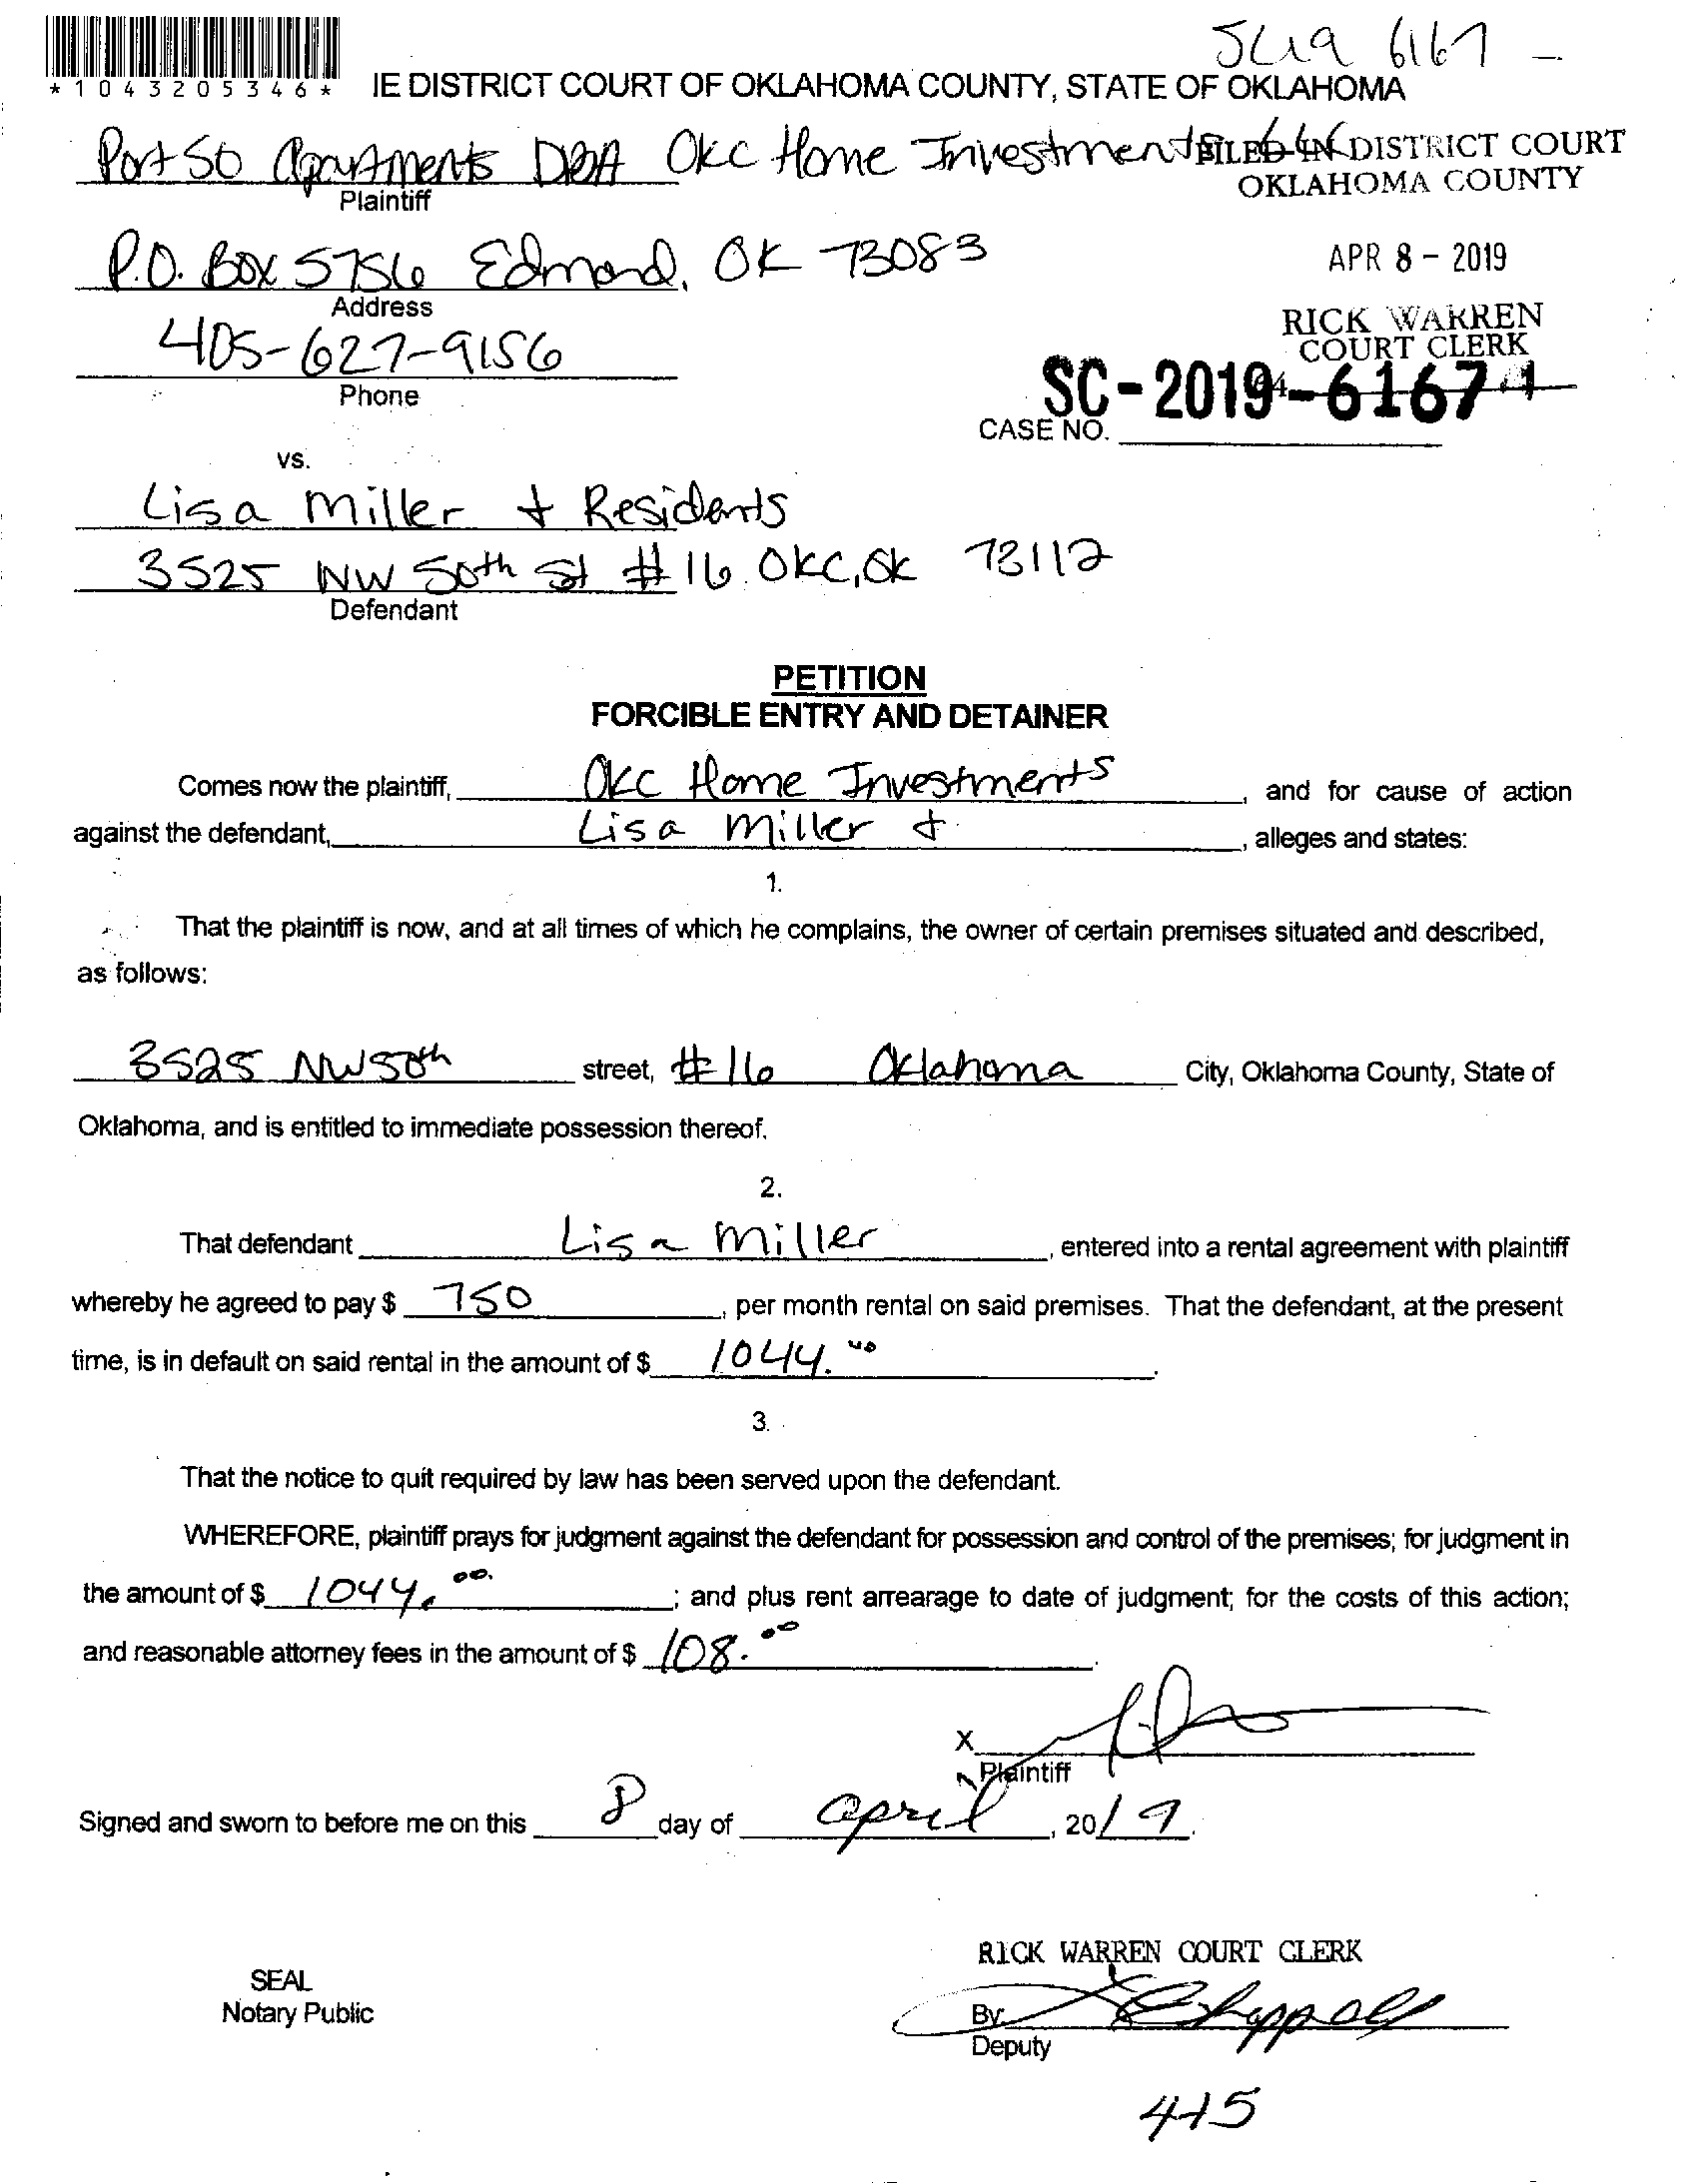 SC19 6167 -
*1043205346*
IE DISTRICT COURT OF OKLAHOMA COUNTY, STATE OF OKLAHOMA
Port 50 Apartments DBA OKC Home Investments
FILED IN DISTRICT COURT
OKLAHOMA COUNTY
Plaintiff
P.O. BOX 5756 Edmond, OK 73083
Address
APR 8 - 2019
405-627-9156
Phone
RICK WARREN
COURT CLERK
SC-2019-6167
CASE NO.
vs.
Lisa Miller + Residents
3525 NW 50th St #16 OKC, OK 73112
Defendant
PETITION
FORCIBLE ENTRY AND DETAINER
Comes now the plaintiff, OKC Home Investments, and for cause of action
against the defendant, Lisa Miller +, alleges and states:
1.
That the plaintiff is now, and at all times of which he complains, the owner of certain premises situated and described,
as follows:
3525 NW 50th street, #16 Oklahoma City, Oklahoma County, State of
Oklahoma, and is entitled to immediate possession thereof.
2.
That defendant Lisa Miller, entered into a rental agreement with plaintiff
whereby he agreed to pay $ 750, per month rental on said premises. That the defendant, at the present
time, is in default on said rental in the amount of $ 1044.00.
3.
That the notice to quit required by law has been served upon the defendant.
WHEREFORE, plaintiff prays for judgment against the defendant for possession and control of the premises; for judgment in
the amount of $ 1044.00; and plus rent arrearage to date of judgment; for the costs of this action;
and reasonable attorney fees in the amount of $ 108.00.
X
Plaintiff
Signed and sworn to before me on this 8 day of april, 2019.
RICK WARREN COURT CLERK
SEAL
Notary Public
By: Chappell
Deputy
415